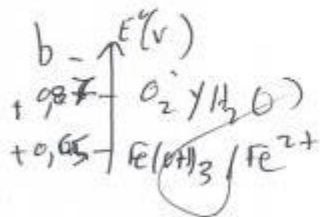 b - E°(V)
+ 0,87 O2 / H2O
+ 0,65 Fe(OH)3 / Fe2+